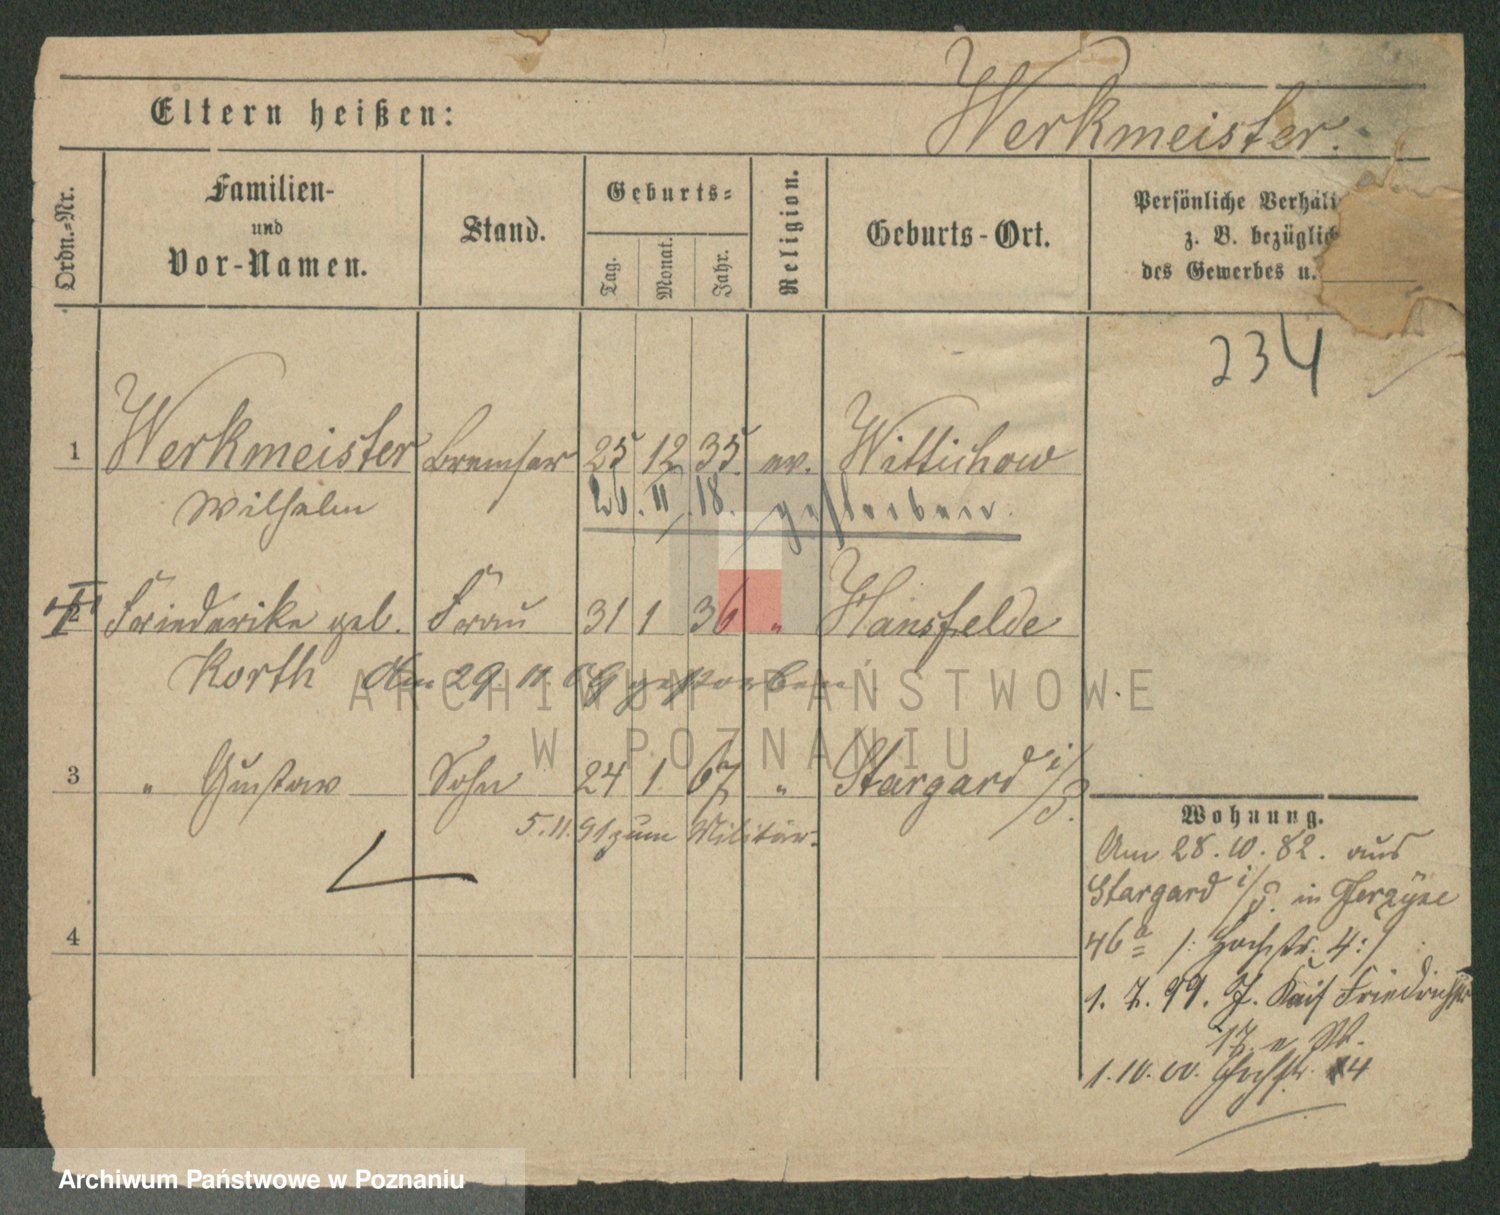 Eltern heißen:
Werkmeister.
Ordn.-Nr.
Familien-
und
Vor-Namen.
Stand.
Geburts-
Tag.
Monat.
Jahr.
Religion.
Geburts-Ort.
Persönliche Verhält
z. B. bezüglich
des Gewerbes u.
234
1 Werkmeister Bremser 25 12 35 ev. Wittichow
Wilhelm 26. 11. 18. gestorben.
2 Friederike geb. Frau 31 1 36 " Hansfelde
Korth Am 29. 11. 09 gestorben
3 " Gustav Sohn 24 1 67 " Stargard i/P.
5.11.91 zum Militär.
4
Wohnung.
Am 28.10.82. aus
Stargard i/P. in Jerzyce
46a /: Hochstr. 4:/
1. 7. 99. J. Kais Friedrichstr
17.
1.10.00. Hochstr. 14
ARCHIWUM PAŃSTWOWE
W POZNANIU
Archiwum Państwowe w Poznaniu